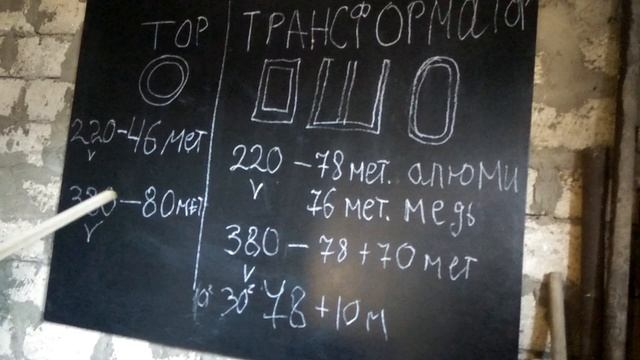 ТОР
220-46 мет
380-80 мет
ТРАНСФОРМАТОР
220 - 78 мет. алюми
76 мет. медь
380 - 78 + 70 мет
10° 30° 78 + 10 м